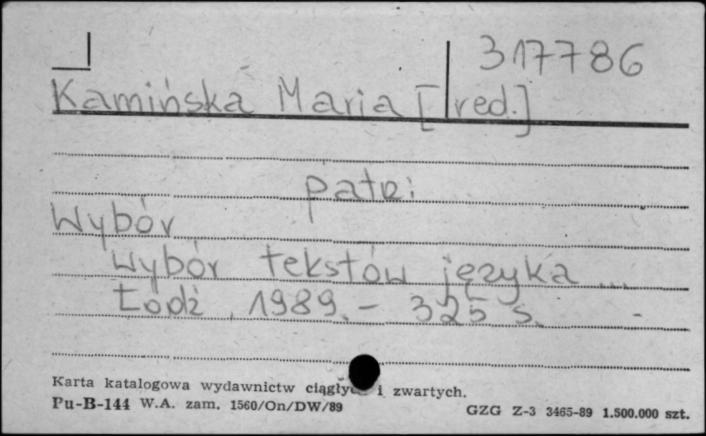 317786
Kamińska Maria [red.]
patrz:
Wybór
Wybór tekstów języka ...
Łódź, 1989. - 325 s.
Karta katalogowa wydawnictw ciągłych i zwartych.
Pu-B-144 W.A. zam. 1560/On/DW/89
GZG Z-3 3465-89 1.500.000 szt.